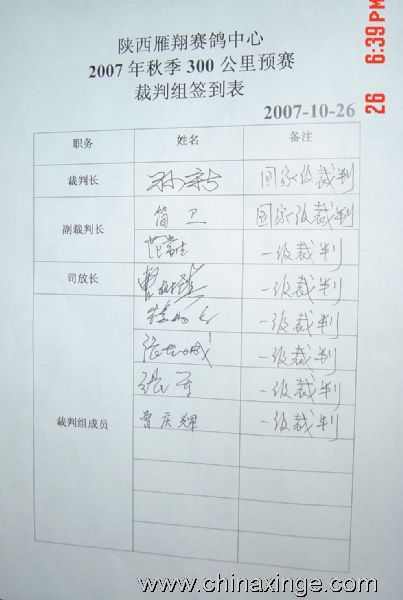 陕西雁翔赛鸽中心
2007年秋季300公里预赛
裁判组签到表
2007-10-26
26 6:39PM
职务 姓名 备注
裁判长 孙新 国家级裁判
副裁判长 简卫 国家级裁判
一级裁判
司放长 一级裁判
一级裁判
一级裁判
张军 一级裁判
裁判组成员 曹庆辉 一级裁判
www.chinaxinge.com